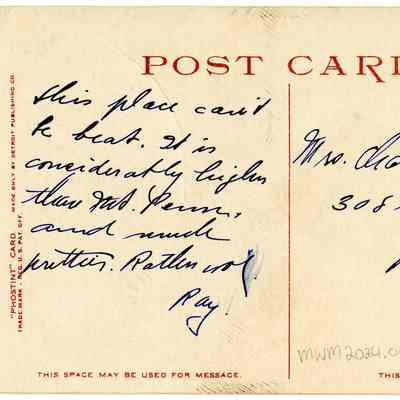 POST CARD
This place can't
be beat. It is
considerably higher
than Mt. Penn,
and much
prettier. Rather cool.
Ray.
Mrs. Cha
308
MWM2024.0
"PHOSTINT" CARD. MADE ONLY BY DETROIT PUBLISHING CO.
TRADE MARK - REG. U.S. PAT. OFF.
THIS SPACE MAY BE USED FOR MESSAGE.
THIS